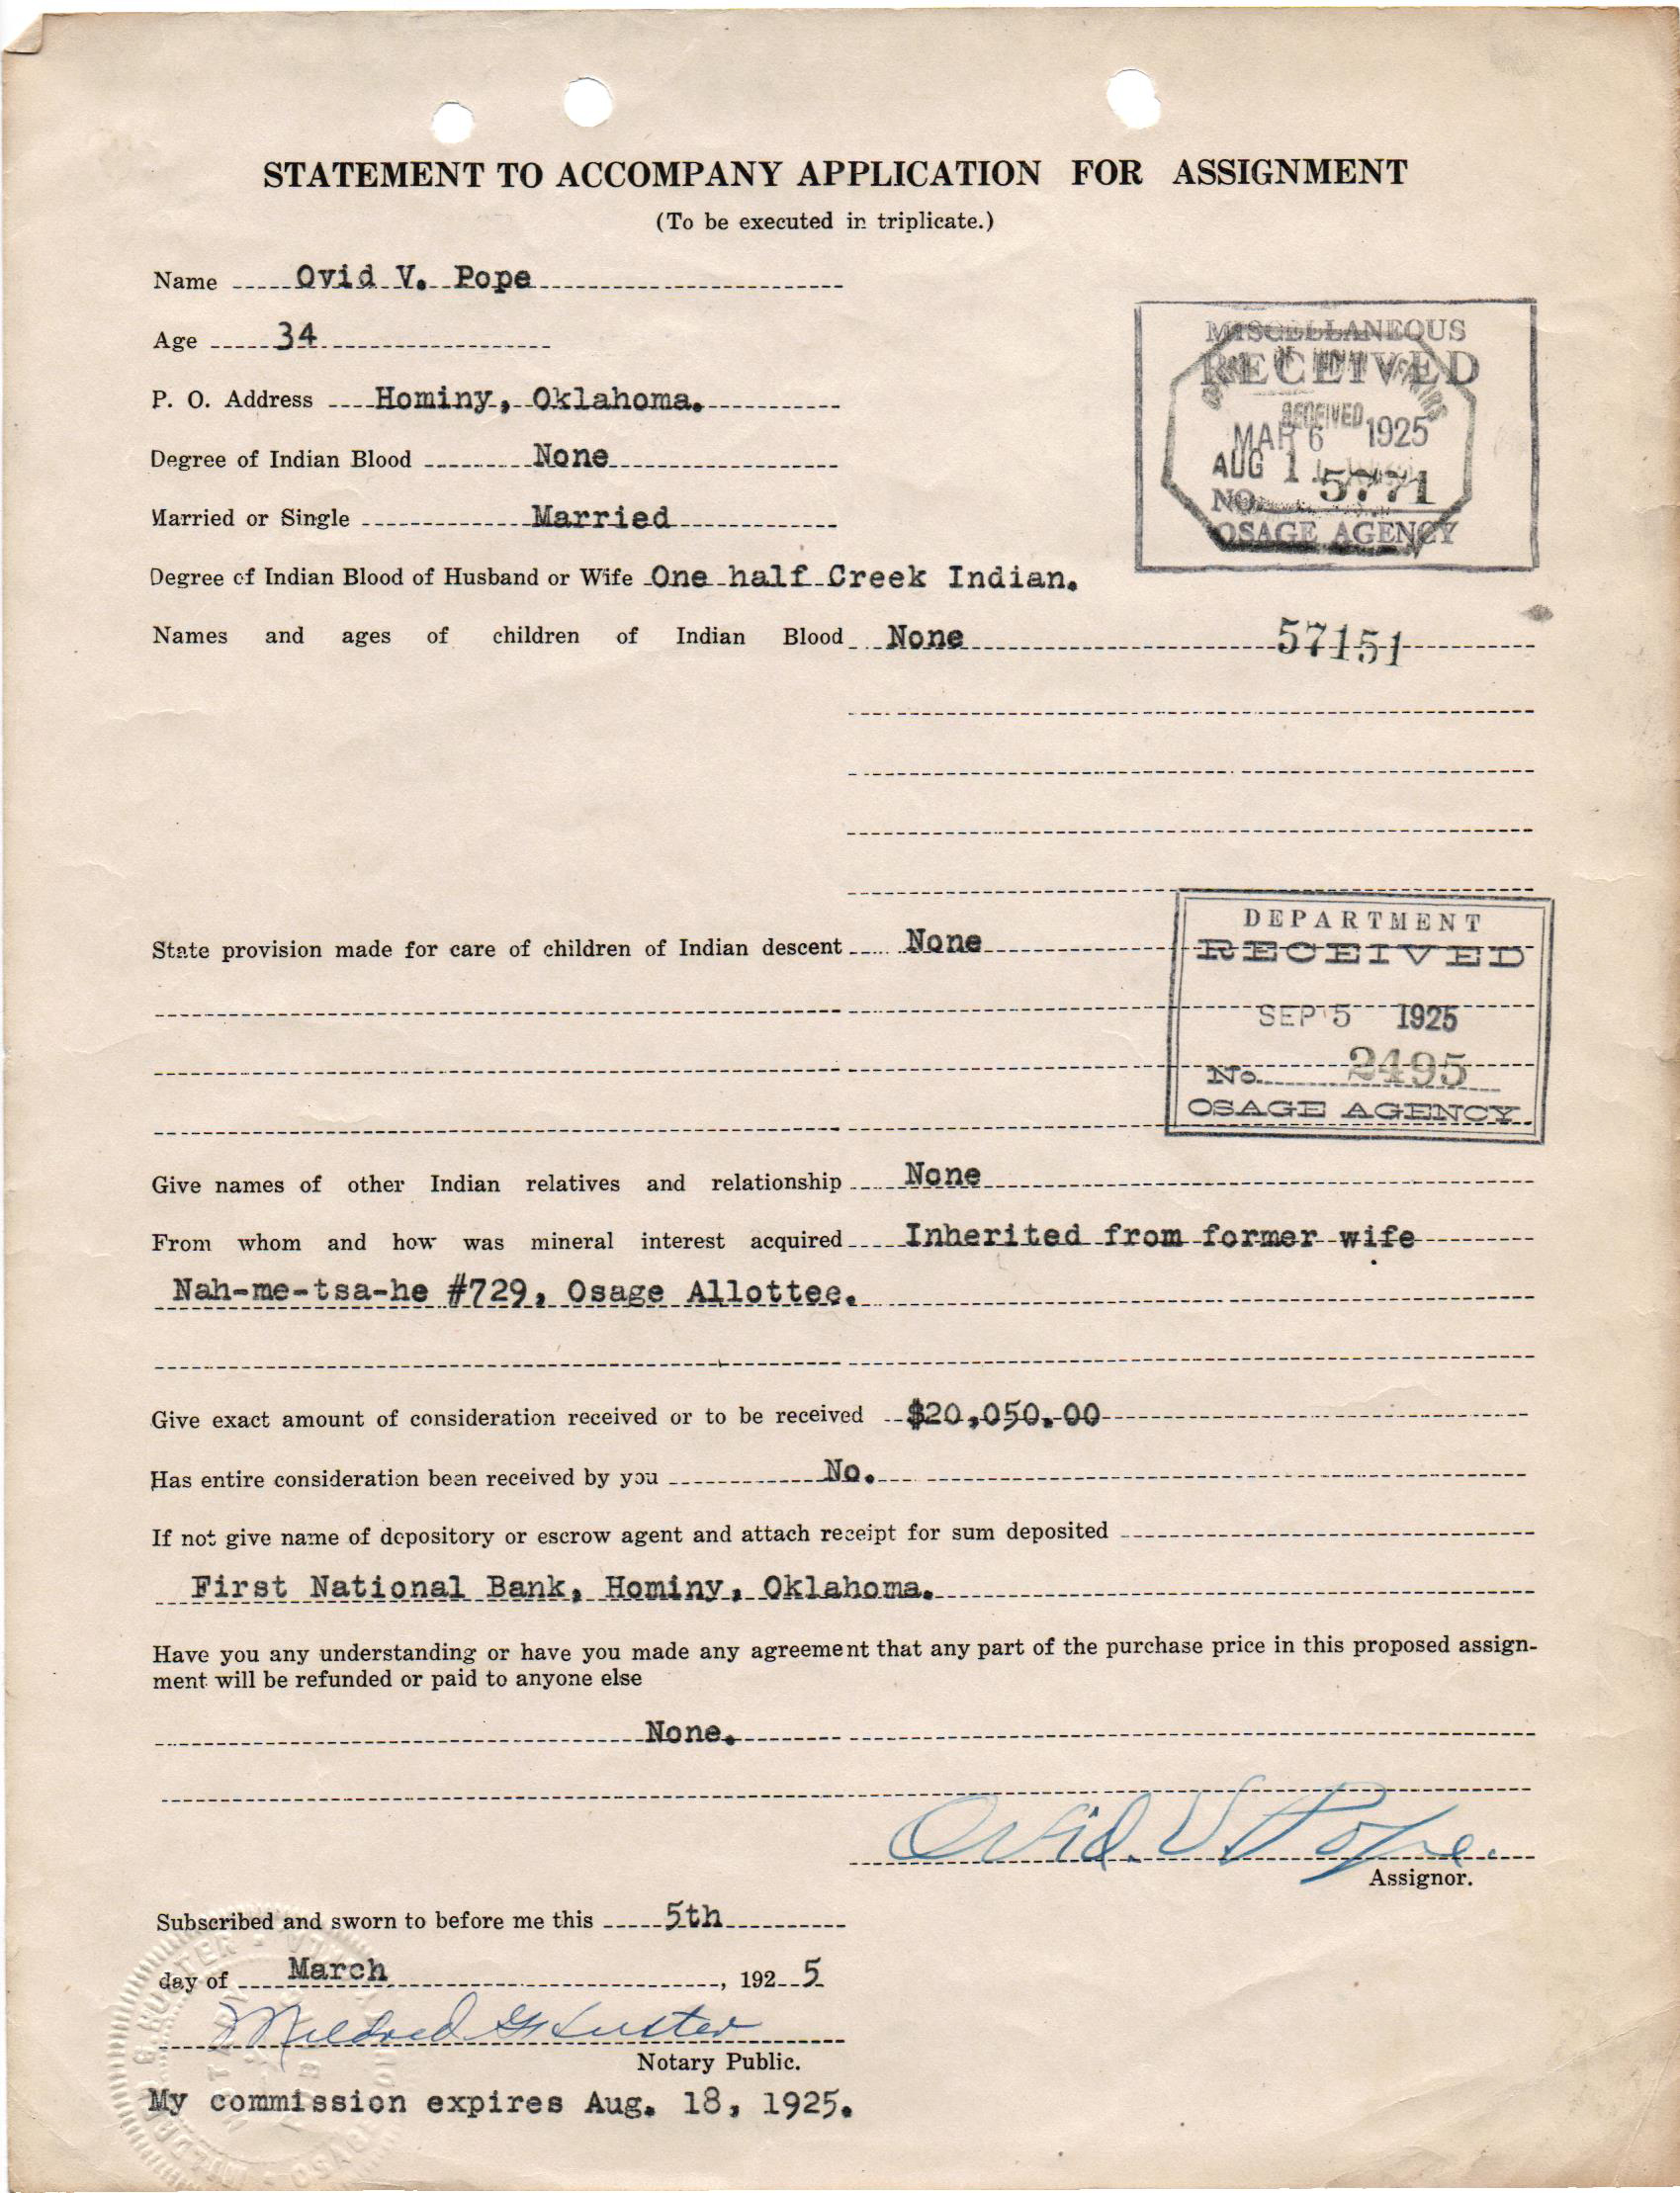 STATEMENT TO ACCOMPANY APPLICATION FOR ASSIGNMENT
(To be executed in triplicate.)
Name Ovid V. Pope
Age 34
P. O. Address Hominy, Oklahoma.
Degree of Indian Blood None
Married or Single Married
Degree of Indian Blood of Husband or Wife One half Creek Indian.
MISCELLANEOUS
RECEIVED
RECEIVED
MAR 6 1925
AUG 1
NO. 5771
OSAGE AGENCY
Names and ages of children of Indian Blood None 57151
State provision made for care of children of Indian descent None
DEPARTMENT
RECEIVED
SEP 5 1925
No. 2495
OSAGE AGENCY.
Give names of other Indian relatives and relationship None
From whom and how was mineral interest acquired Inherited from former wife
Nah-me-tsa-he #729, Osage Allottee.
Give exact amount of consideration received or to be received $20,050.00
Has entire consideration been received by you No.
If not give name of depository or escrow agent and attach receipt for sum deposited
First National Bank, Hominy, Oklahoma.
Have you any understanding or have you made any agreement that any part of the purchase price in this proposed assign-
ment will be refunded or paid to anyone else
None.
Ovid. V Pope.
Assignor.
Subscribed and sworn to before me this 5th
day of March, 192 5
Mildred G Huster
Notary Public.
My commission expires Aug. 18, 1925.